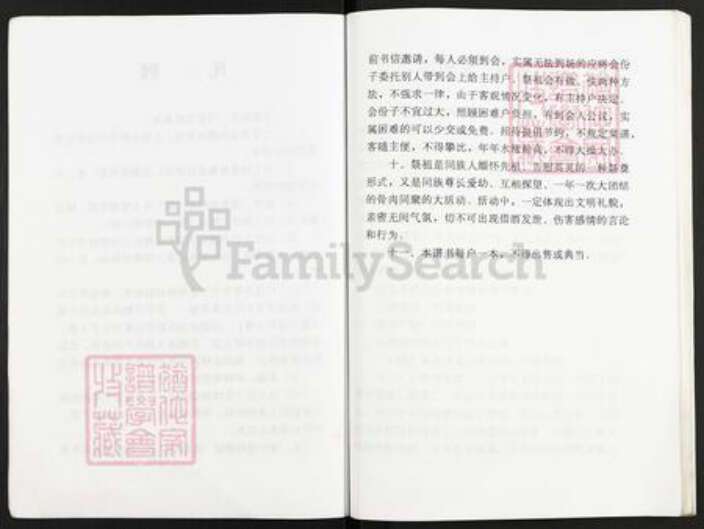 前书信邀请，每人必须到会，实属无法到场的应将会份
子委托别人带到会上给主持户。祭祖会有做、
法，不强求一律，由于客观情况变化，有主持户决定。
会份子不宜过大，照顾困难户负担，有到会人公议，实
属困难的可以少交或免费。招待提倡节约，不规定菜谱，
客随主便，不得攀比，年年水涨船高，不得大操大办。
十、祭祖是同族人缅怀先祖、告慰英灵的一种
形式，又是同族尊长爱幼、互相探望、一年一次大团结
的骨肉同聚的大活动。活动中，一定体现出文明礼貌，
亲密无间气氛，切不可出现借酒发泄、伤害感情的言论
和行为。
十一、本谱书每户一本，不得出售或典当。
FamilySearch
猶他家
譜學會
收藏